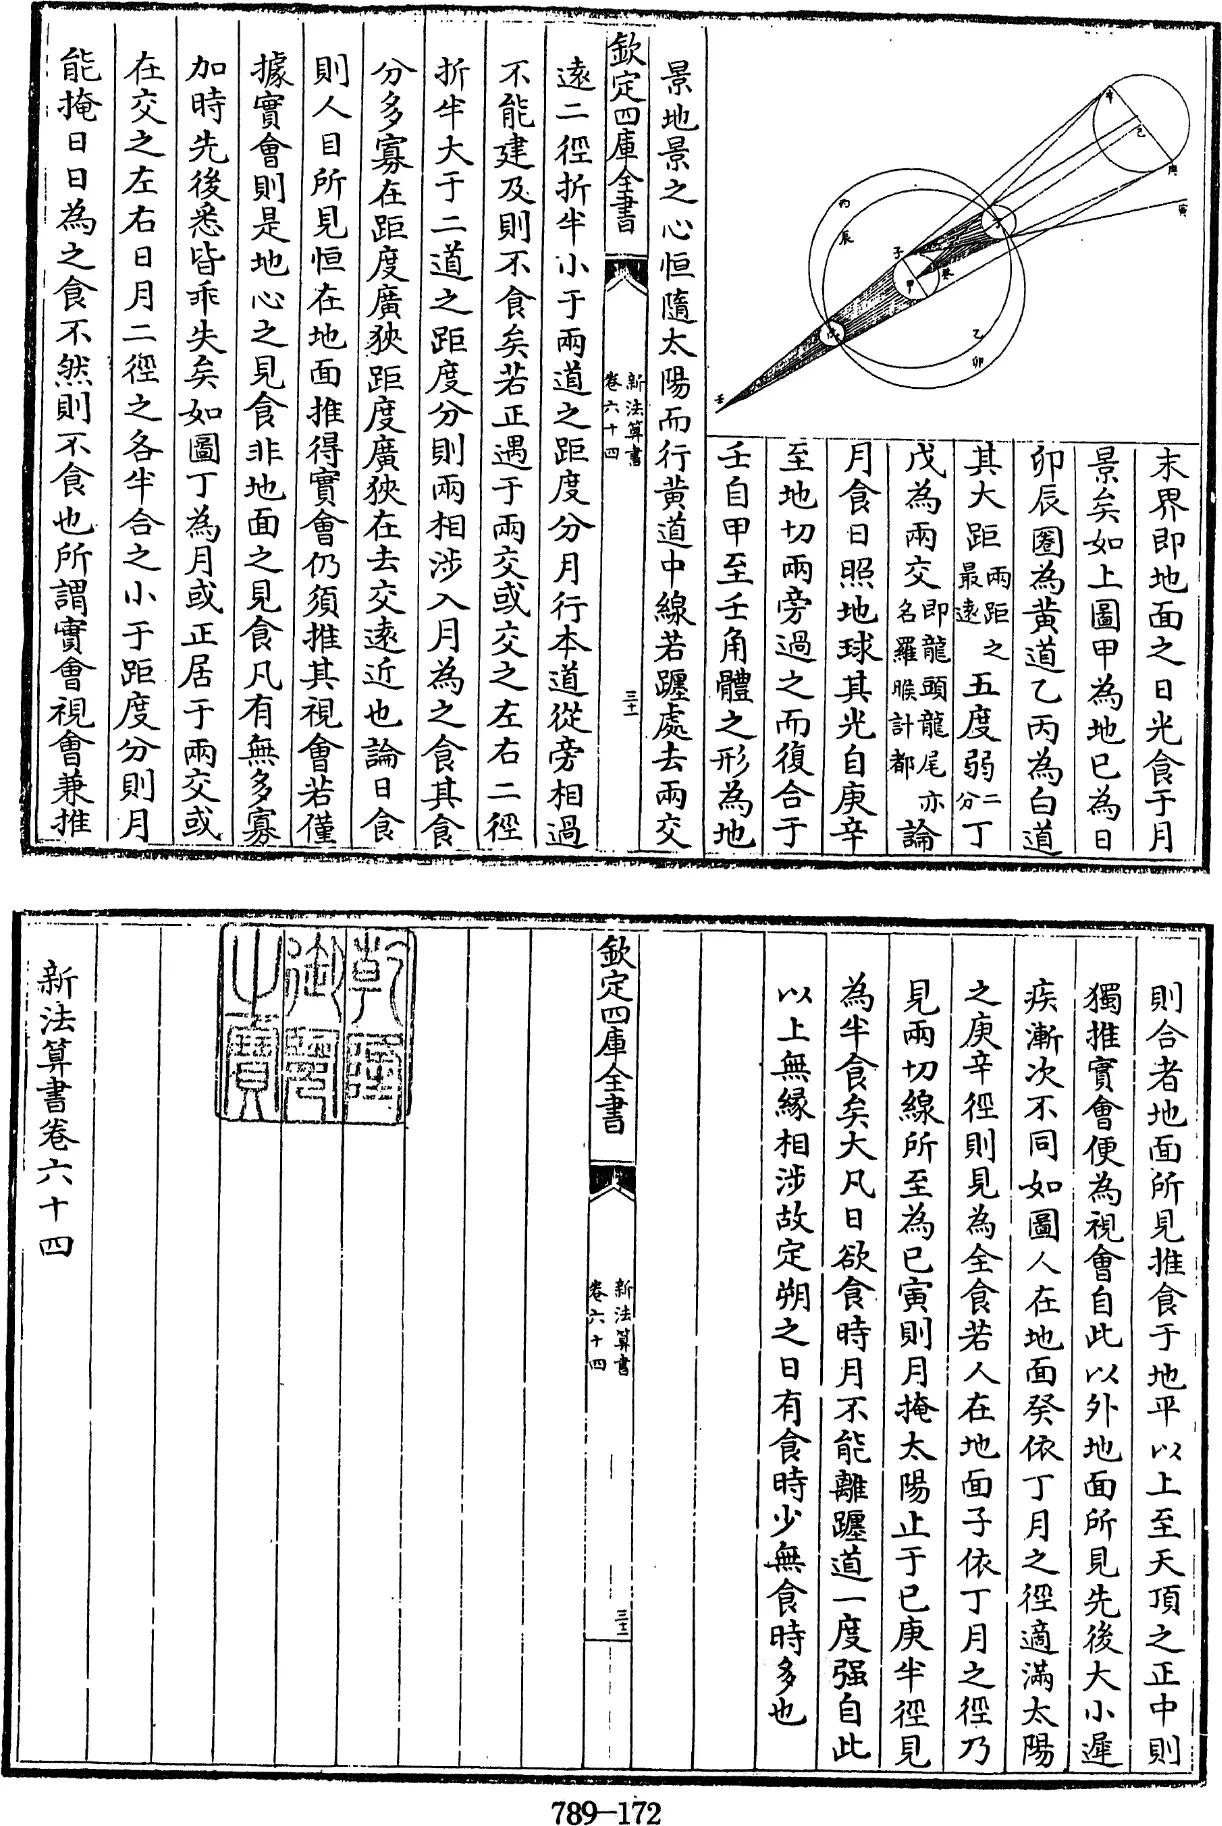 末界即地面之日光食于月
景矣如上圖甲為地已為日
卯辰圈為黄道乙丙為白道
其大距兩距之最遠五度弱二分丁
戊為兩交即龍頭龍尾亦名羅㬋計都論
月食日照地球其光自庚辛
至地切兩旁過之而復合于
壬自甲至壬角體之形為地
景地景之心恒隨太陽而行黄道中線若躔處去兩交
欽定四庫全書
新法算書
卷六十四
三十一
遠二徑折半小于兩道之距度分月行本道從旁相過
不能建及則不食矣若正遇于兩交或交之左右二徑
折半大于二道之距度分則兩相涉入月為之食其食
分多寡在距度廣狹距度廣狹在去交遠近也論日食
則人目所見恒在地面推得實會仍須推其視會若僅
據實會則是地心之見食非地面之見食凡有無多寡
加時先後悉皆乖失矣如圖丁為月或正居于兩交或
在交之左右日月二徑之各半合之小于距度分則月
能掩日日為之食不然則不食也所謂實會視會兼推
辛
己
庚
寅
丙
辰
丁
子
癸
甲
戊
乙
卯
壬
則合者地面所見推食于地平以上至天頂之正中則
獨推實會便為視會自此以外地面所見先後大小遲
疾漸次不同如圖人在地面癸依丁月之徑適滿太陽
之庚辛徑則見為全食若人在地面子依丁月之徑乃
見兩切線所至為已寅則月掩太陽止于已庚半徑見
為半食矣大凡日欲食時月不能離躔道一度强自此
以上無緣相涉故定朔之日有食時少無食時多也
欽定四庫全書
新法算書
卷六十四
三十二
乾隆
御覽
之寶
新法算書卷六十四
789-172